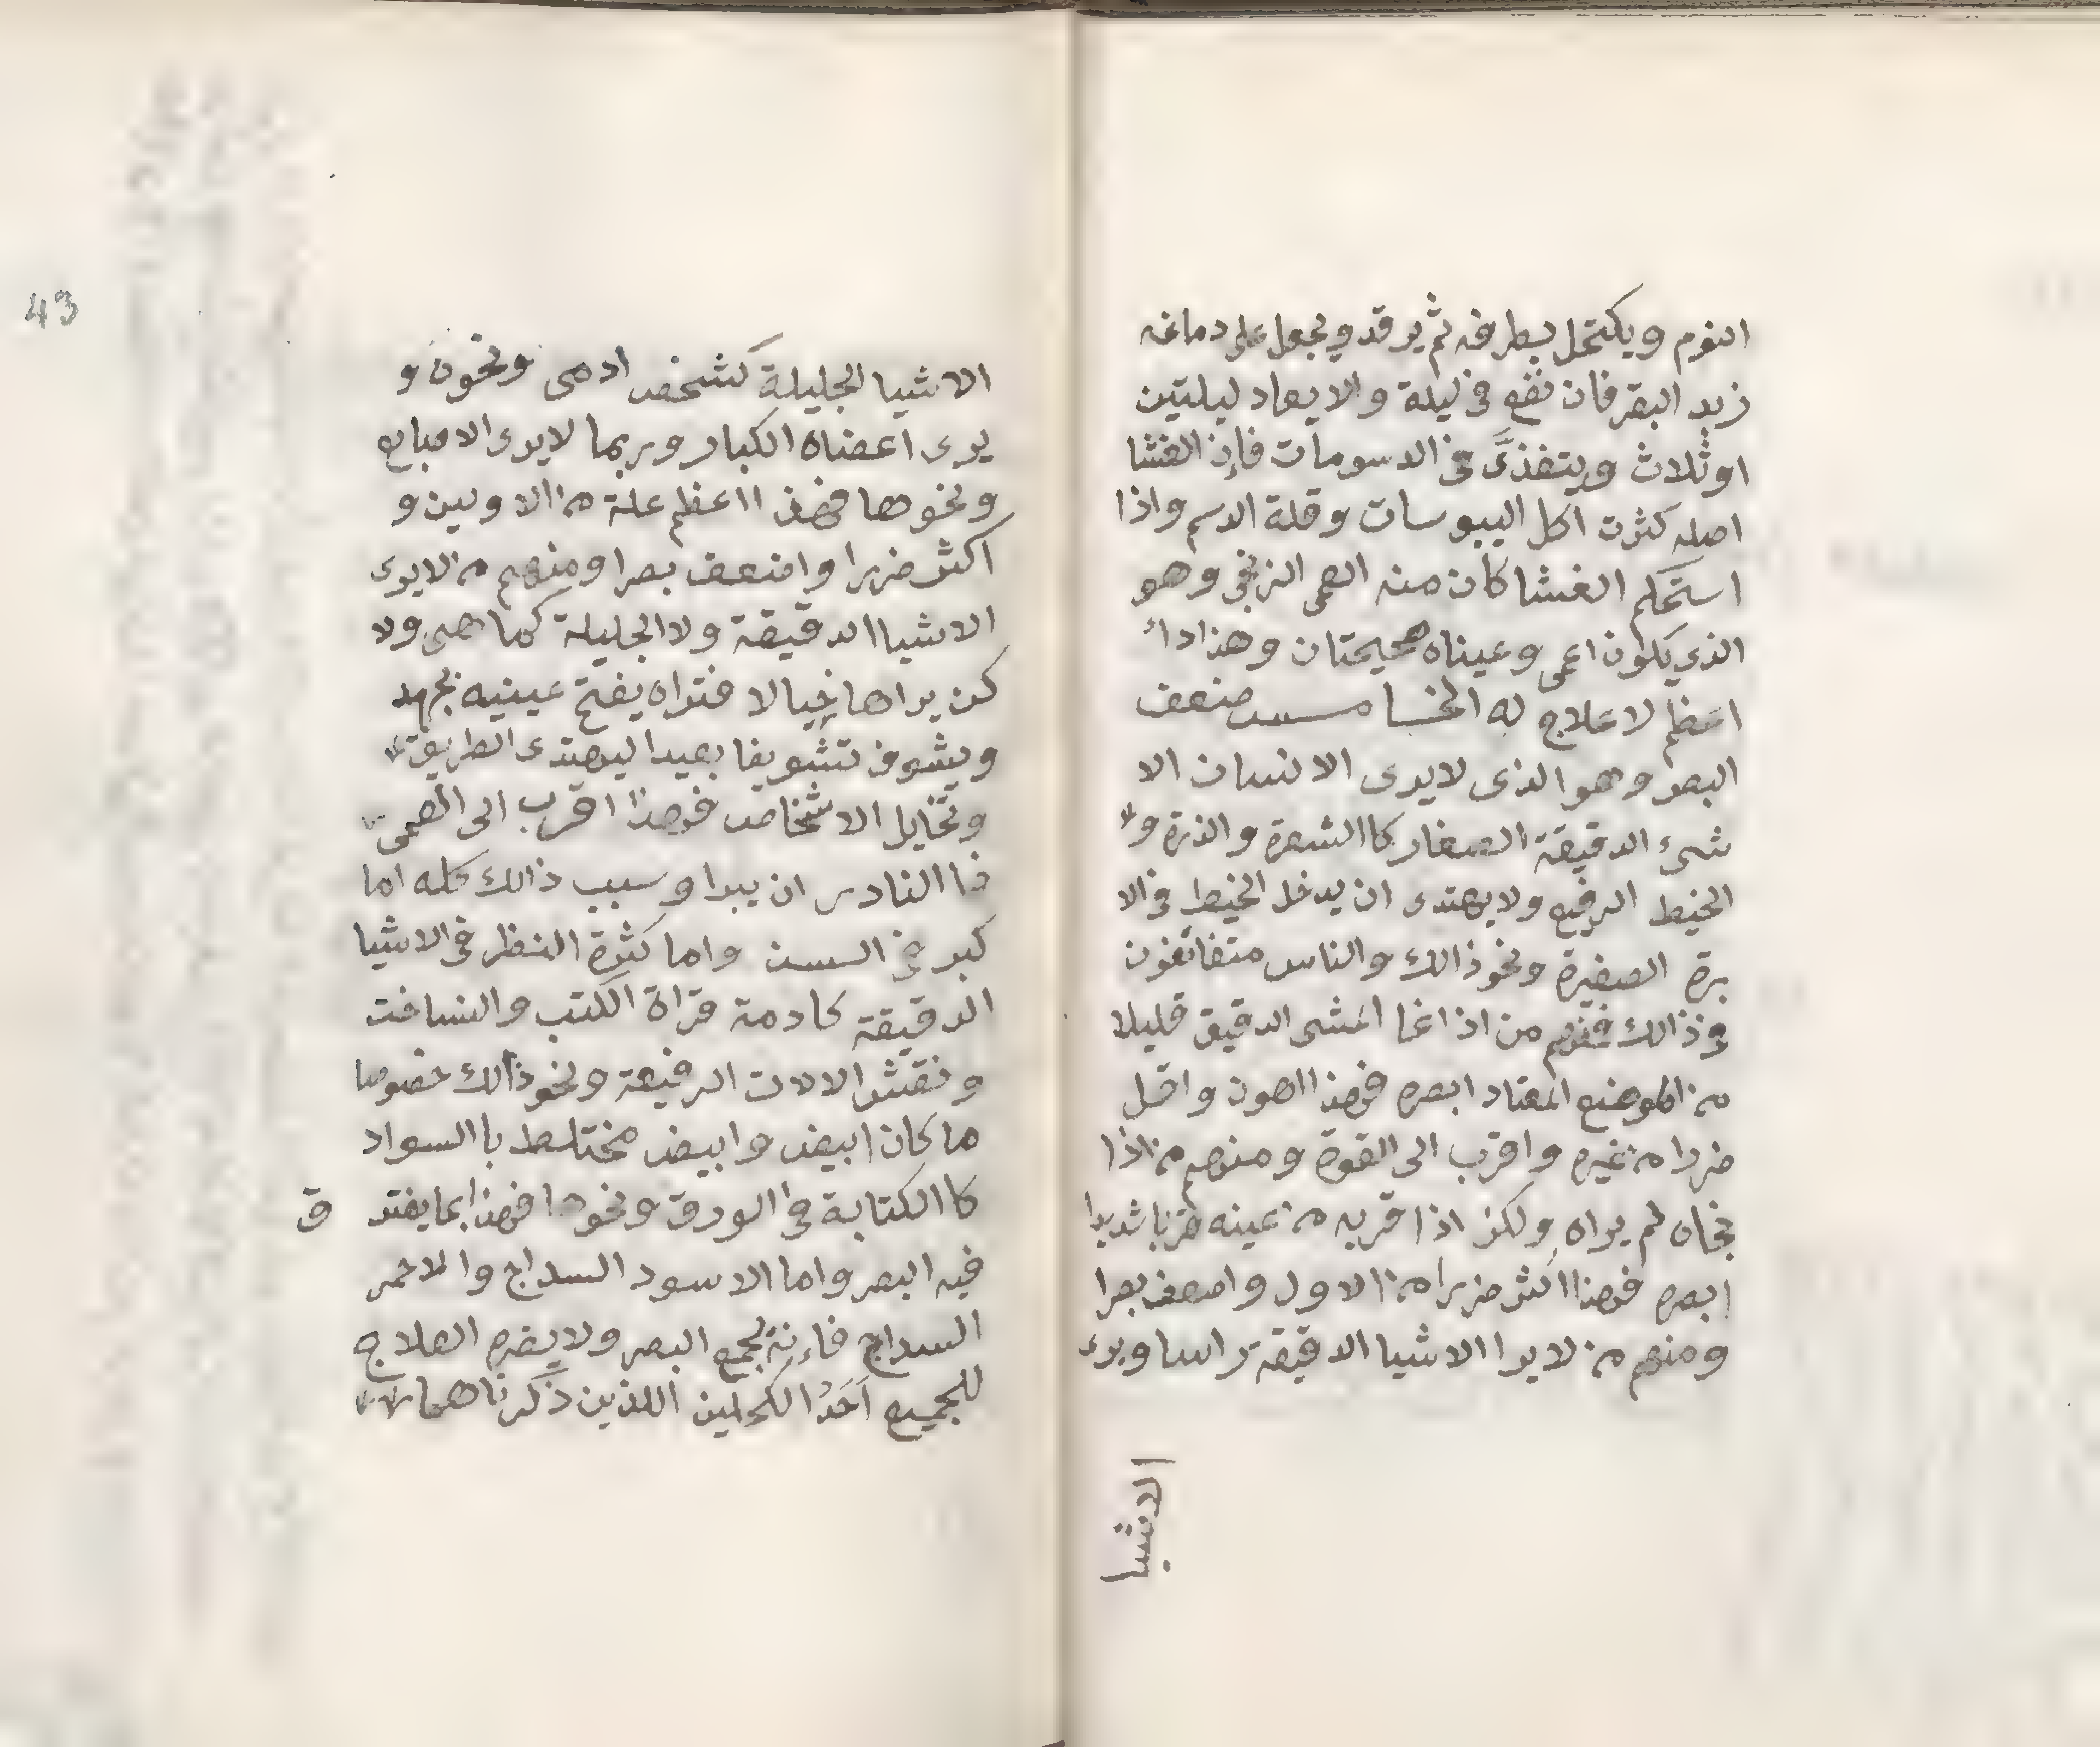 النوم ويكتحل بطرفه ثم يرقد ويجعل على دماغه
زبد البقر فان نفع في ليلة والا يعاد ليلتين
او ثلاث ويتغذَّى في الدسومات فإن الغشا
اصله كثرت اكل اليبوسات وقلة الدسم واذا
استحكم الغشا كان منه العمى الزنجي وهو
الذي يكون اعمى وعيناه صحيحتان وهذا داء
اعظم لا علاج له الخامس ضعف
البصر وهو الذى لا يرى الانسان الا
شىء الدقيقة الصغار كا الشعرة والذرة و
الخيط الرفيع ولا يهتدى ان يدخل الخيط في الا
برة الصغيرة ونحو ذالك والناس
في ذالك فمنهم من اذا الشى الدقيق قليلا
من الموضع المعتاد ابصره فهذا اهون واقل
ضررا من غيره واقرب الى القوة ومنهم من اذا
نحاه لم يراه ولكن اذا قربه من عينه قربا شديدا
ابصره فهذا اكثر ضررا من الاول واضعف بصرا
ومنهم من لا يرا الاشيا الدقيقة راسا ويرى
الاشيا
43
الاشيا الجليلة كشخص ادمى ونحوه و
يرى اعضاه الكبار وربما لا يرى الاصابع
ونحوها فهذا اعظم علة من الاولين و
اكثر ضررا واضعف بصرا ومنهم من لا يرى
الاشيا الدقيقة ولا الجليلة كما هى ولا
كن يراها خيالا فتراه يفتح عينيه بجهد
ويشوف تشويفا بعيدا ليهتدى الطريق
وتخايل الاشخاص فهذا اقرب الى العمى
فا النادر ان يبرا وسبب ذالك كله اما
كبر في السن واما كثرة النظر في الاشيا
الدقيقة كادمة قراة الكتب والنساخت
ونقش الالات الرفيعة ونحو ذالك خصوصا
ما كان ابيض وابيض مختلط با السواد
كا الكتابة في الورق ونحوها فهذا مما يفتر
ق
فيه البصر واما الاسود السداج والاحمر
السداج فاءنه يجمع البصر ولا يضره العلاج
للجميع اَحَدُ الكحلين اللذين ذكرناهما